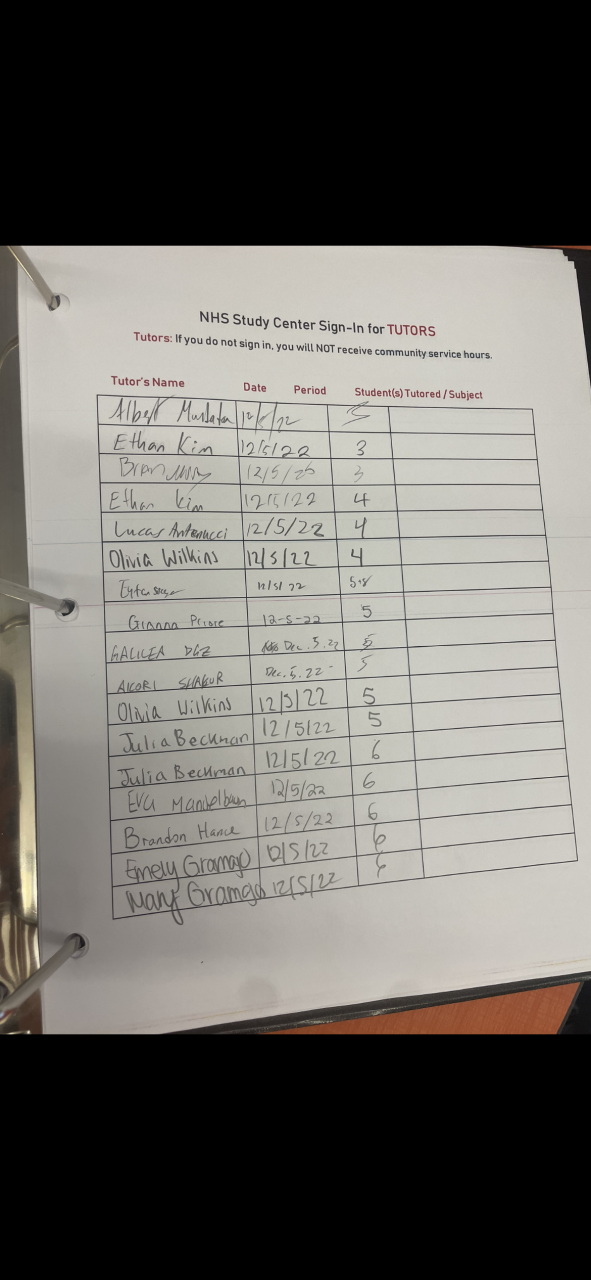 NHS Study Center Sign-In for TUTORS
Tutors: If you do not sign in, you will NOT receive community service hours.
Tutor's Name Date Period Student(s) Tutored / Subject
Albert 12/5/22
Ethan Kim 12/5/22 3
12/5/ 3
Ethan Kim 12/5/22 4
Lucas Antonucci 12/5/22 4
Olivia Wilkins 12/5/22 4
12/5/22
Gianna Priore 12-5-22 5
GALILEA Dec. 5. 22 5
AKORI SHAKUR Dec. 5. 22 5
Olivia Wilkins 12/5/22 5
Julia Beckman 12/5/22 5
Julia Beckman 12/5/22 6
Eva Mandelbaum 12/5/22 6
Brandon Hance 12/5/22 6
Emely Gramajo 12/5/22 6
Mary Gramajo 12/5/22 6